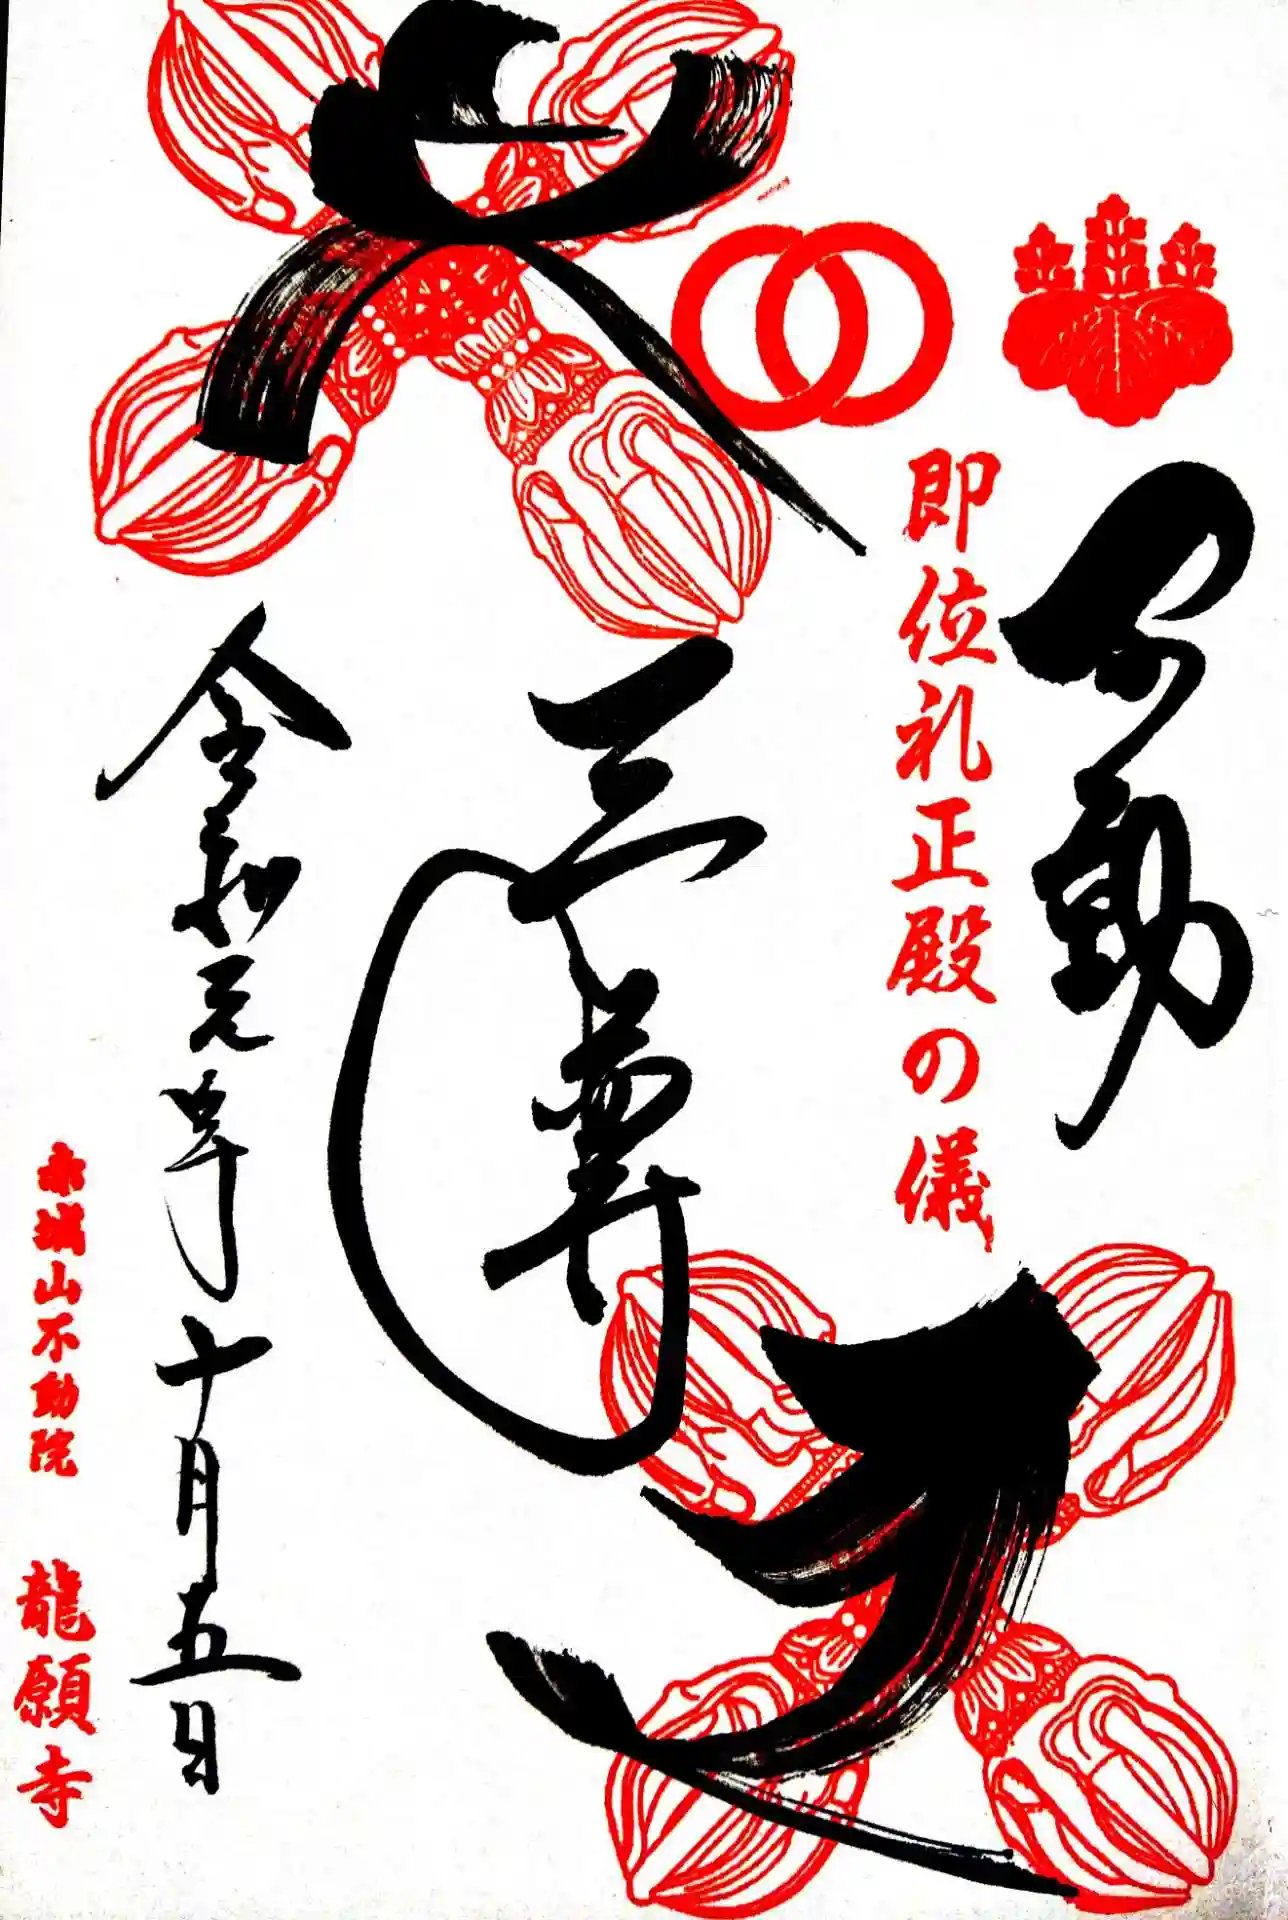 不動
即位礼正殿の儀
三尊
令和元年十月五日
赤城山不動院 龍願寺